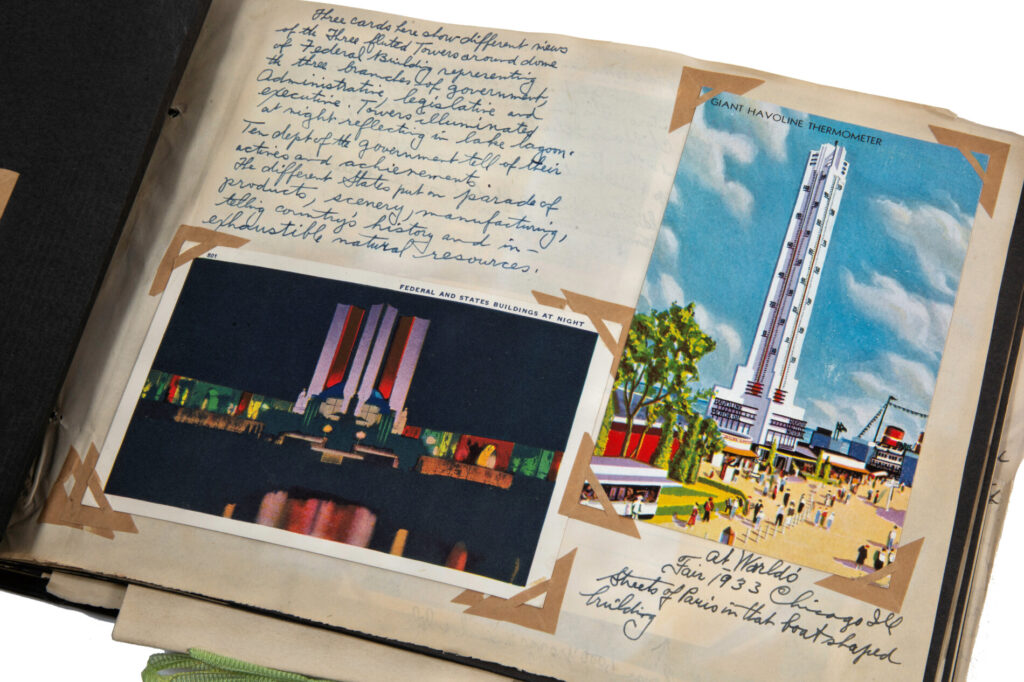 Three cards here show different views
of the Three fluted Towers around dome
of Federal Building representing
the three branches of government,
Administrative, legislative and
executive. Towers illuminated
at night reflecting in lake lagoon.
Ten dept of the government tell of their
activies and achievements.
The different States put on parade of
products, scenery, manufacturing,
telling country's history and in-
exhaustible natural resources.
801
FEDERAL AND STATES BUILDINGS AT NIGHT
GIANT HAVOLINE THERMOMETER
at Worlds
Fair 1933 Chicago Ill
Streets of Paris in that boat shaped
building